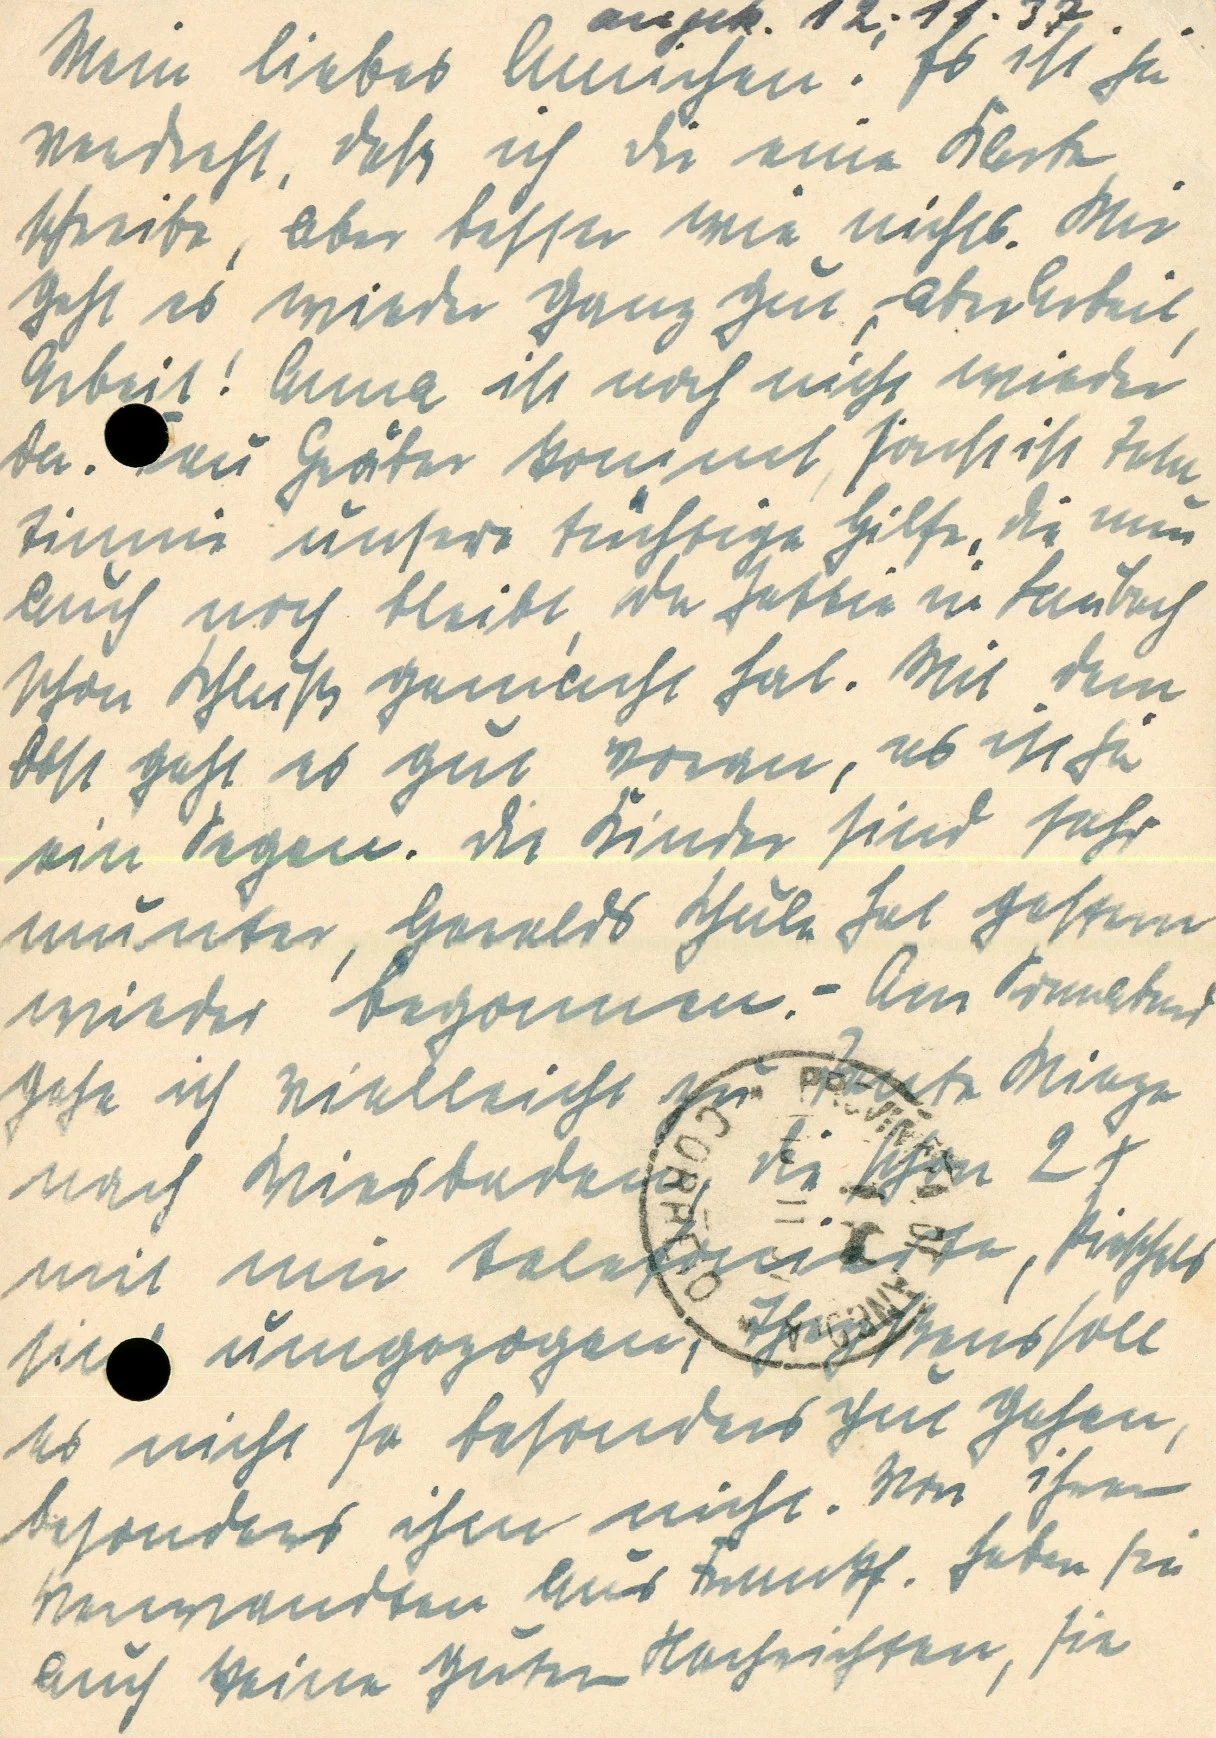 angek. 12.11.37.
Mein liebes Annichen! Es ist ja
verdreht, daß ich dir eine Karte
schreibe, aber besser wie nichts. Mir
geht es wieder ganz gut, aber Arbeit,
Arbeit! Anna ist noch nicht wieder
da. Frau Gräber kommt, sonst ist
unsere tüchtige Hilfe, die nun
auch noch bleibt, da in Laubach
schon Schluß gemacht hat. Mit dem
Obst geht es gut voran, es ist ja
ein Segen. Die Kinder sind sehr
munter, Geralds Schule hat gestern
wieder begonnen. - Am Sonnabend
gehe ich vielleicht zu Tante Mieze
nach Wiesbaden, die schon 2 x
mit mir telefonierte,
sind umgezogen, soll
es nicht so besonders gut gehen,
besonders ihm nicht. Von ihren
Verwandten aus Frankf. haben sie
auch keine guten Nachrichten, sie
CORREO